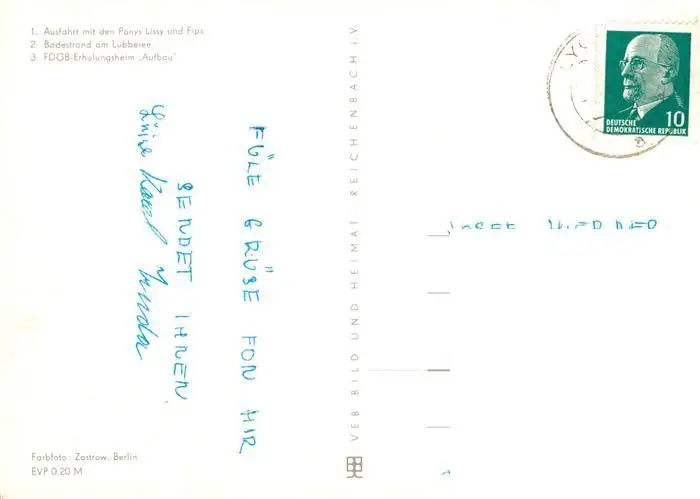 1. Ausfahrt mit den Ponys Lissy und Fips
2. Badestrand am Lübbesee
3. FDGB-Erholungsheim „Aufbau"
FÜLE GRÜSE FON HIR
SENDET IHNEN
Farbfoto: Zastrow, Berlin
EVP 0,20 M
VEB BILD UND HEIMAT REICHENBACH i.V.
10
DEUTSCHE
DEMOKRATISCHE REPUBLIK